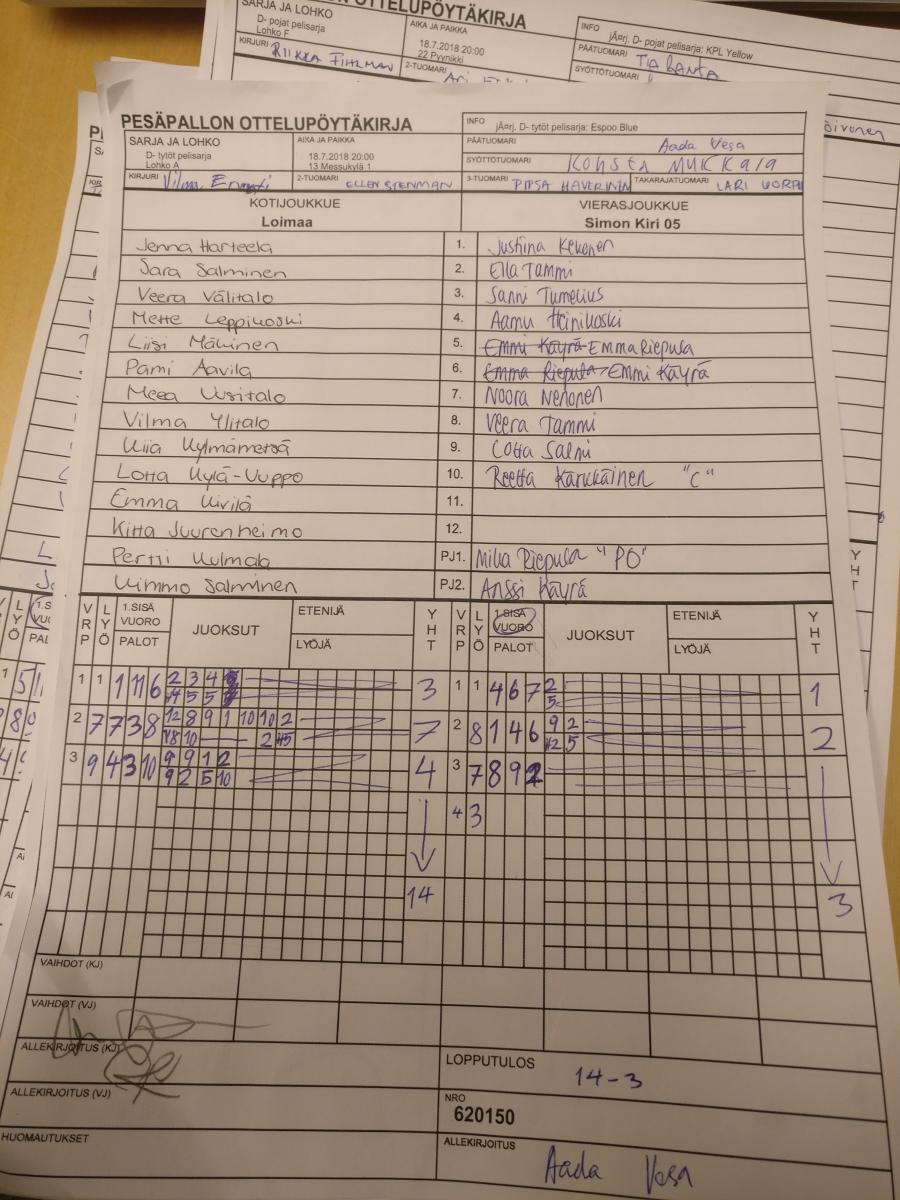 SARJA JA LOHKO
D- pojat pelisarja
Lohko F
KIRJURI RIIKKA
OTTELUPÖYTÄKIRJA
AIKA JA PAIKKA
18.7.2018 20:00
22 Pyynikki
2-TUOMARI
INFO
jÄ¤rj. D- pojat pelisarja: KPL Yellow
PÄÄTUOMARI TIA RANTA
SYÖTTÖTUOMARI
PESÄPALLON OTTELUPÖYTÄKIRJA
INFO jÄ¤rj. D- tytöt pelisarja: Espoo Blue
SARJA JA LOHKO
D- tytöt pelisarja
Lohko A
AIKA JA PAIKKA
18.7.2018 20:00
13 Messukylä 1
PÄÄTUOMARI Aada Vesa
SYÖTTÖTUOMARI
KIRJURI Vilma
2-TUOMARI ELLEN STENMAN
3-TUOMARI PIPSA HAVERINEN
TAKARAJATUOMARI LARI
KOTIJOUKKUE
Loimaa
VIERASJOUKKUE
Simon Kiri 05
Jenna Harteela 1. Justiina Kekonen
Sara Salminen 2. Ella Tammi
Veera Välitalo 3. Sanni Tumelius
Mette Leppikoski 4. Aamu Heinikoski
Liisi Mäkinen 5. Emmi Käyrä Emma Riepula
Pami Aavila 6. Emma Riepula Emmi Käyrä
Meea Uusitalo 7. Noora Nenonen
Vilma Ylitalo 8. Veera Tammi
Kiia Kylmämetsä 9. Cotta Salmi
Lotta Kylä-Vuppo 10. Reetta Karkkainen "C"
Emma Kivilä 11.
Kitta Juurenheimo 12.
Pertti Kulmala PJ1. Milla Riepula "PO"
Kimmo Salminen PJ2. Anssi Käyrä
VRP LYÖ 1.SISÄ VUORO PALOT JUOKSUT ETENIJÄ LYÖJÄ YHT
VRP LYÖ 1.SISÄ VUORO PALOT JUOKSUT ETENIJÄ LYÖJÄ YHT
1 1 1 11 6 2 3 4 3
4 5 5
1 1 4 6 7 2 1
5
2 7 7 3 8 12 8 9 1 10 10 2 7
2 8 1 4 6 9 2 2
3 9 4 3 10 9 9 1 2 4
9 2 5 10
3 7 8 9 2
4 3
14
3
VAIHDOT (KJ)
VAIHDOT (VJ)
ALLEKIRJOITUS (KJ)
ALLEKIRJOITUS (VJ)
HUOMAUTUKSET
LOPPUTULOS
14-3
NRO
620150
ALLEKIRJOITUS
Aada Vesa